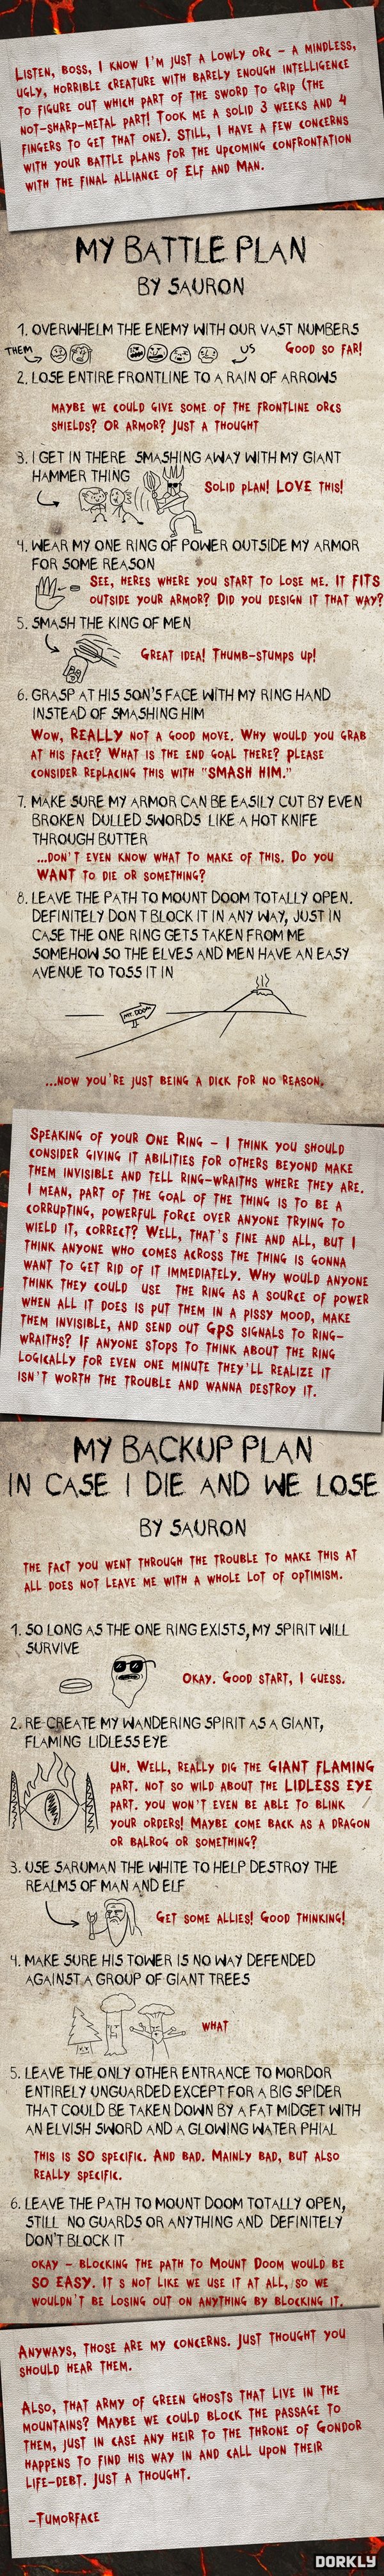 LISTEN, BOSS, I KNOW I'M JUST A LOWLY ORC - A MINDLESS,
UGLY, HORRIBLE CREATURE WITH BARELY ENOUGH INTELLIGENCE
TO FIGURE OUT WHICH PART OF THE SWORD TO GRIP (THE
NOT-SHARP-METAL PART! TOOK ME A SOLID 3 WEEKS AND 4
FINGERS TO GET THAT ONE). STILL, I HAVE A FEW CONCERNS
WITH YOUR BATTLE PLANS FOR THE UPCOMING CONFRONTATION
WITH THE FINAL ALLIANCE OF ELF AND MAN.
MY BATTLE PLAN
BY SAURON
1. OVERWHELM THE ENEMY WITH OUR VAST NUMBERS
THEM
US
GOOD SO FAR!
2. LOSE ENTIRE FRONTLINE TO A RAIN OF ARROWS
MAYBE WE COULD GIVE SOME OF THE FRONTLINE ORCS
SHIELDS? OR ARMOR? JUST A THOUGHT
3. I GET IN THERE SMASHING AWAY WITH MY GIANT
HAMMER THING
SOLID PLAN! LOVE THIS!
4. WEAR MY ONE RING OF POWER OUTSIDE MY ARMOR
FOR SOME REASON
SEE, HERES WHERE YOU START TO LOSE ME. IT FITS
OUTSIDE YOUR ARMOR? DID YOU DESIGN IT THAT WAY?
5. SMASH THE KING OF MEN
GREAT IDEA! THUMB-STUMPS UP!
6. GRASP AT HIS SON'S FACE WITH MY RING HAND
INSTEAD OF SMASHING HIM
WOW, REALLY NOT A GOOD MOVE. WHY WOULD YOU GRAB
AT HIS FACE? WHAT IS THE END GOAL THERE? PLEASE
CONSIDER REPLACING THIS WITH "SMASH HIM."
7. MAKE SURE MY ARMOR CAN BE EASILY CUT BY EVEN
BROKEN DULLED SWORDS LIKE A HOT KNIFE
THROUGH BUTTER
...DON'T EVEN KNOW WHAT TO MAKE OF THIS. DO YOU
WANT TO DIE OR SOMETHING?
8. LEAVE THE PATH TO MOUNT DOOM TOTALLY OPEN.
DEFINITELY DON T BLOCK IT IN ANY WAY, JUST IN
CASE THE ONE RING GETS TAKEN FROM ME
SOMEHOW SO THE ELVES AND MEN HAVE AN EASY
AVENUE TO TOSS IT IN
MT. DOOM
...NOW YOU'RE JUST BEING A DICK FOR NO REASON.
SPEAKING OF YOUR ONE RING - I THINK YOU SHOULD
CONSIDER GIVING IT ABILITIES FOR OTHERS BEYOND MAKE
THEM INVISIBLE AND TELL RING-WRAITHS WHERE THEY ARE.
I MEAN, PART OF THE GOAL OF THE THING IS TO BE A
CORRUPTING, POWERFUL FORCE OVER ANYONE TRYING TO
WIELD IT, CORRECT? WELL, THAT'S FINE AND ALL, BUT I
THINK ANYONE WHO COMES ACROSS THE THING IS GONNA
WANT TO GET RID OF IT IMMEDIATELY. WHY WOULD ANYONE
THINK THEY COULD USE THE RING AS A SOURCE OF POWER
WHEN ALL IT DOES IS PUT THEM IN A PISSY MOOD, MAKE
THEM INVISIBLE, AND SEND OUT GPS SIGNALS TO RING-
WRAITHS? IF ANYONE STOPS TO THINK ABOUT THE RING
LOGICALLY FOR EVEN ONE MINUTE THEY'LL REALIZE IT
ISN'T WORTH THE TROUBLE AND WANNA DESTROY IT.
MY BACKUP PLAN
IN CASE I DIE AND WE LOSE
BY SAURON
THE FACT YOU WENT THROUGH THE TROUBLE TO MAKE THIS AT
ALL DOES NOT LEAVE ME WITH A WHOLE LOT OF OPTIMISM.
1. SO LONG AS THE ONE RING EXISTS, MY SPIRIT WILL
SURVIVE
OKAY. GOOD START, I GUESS.
2. RE CREATE MY WANDERING SPIRIT AS A GIANT,
FLAMING LIDLESS EYE
UH. WELL, REALLY DIG THE GIANT FLAMING
PART. NOT SO WILD ABOUT THE LIDLESS EYE
PART. YOU WON'T EVEN BE ABLE TO BLINK
YOUR ORDERS! MAYBE COME BACK AS A DRAGON
OR BALROG OR SOMETHING?
3. USE SARUMAN THE WHITE TO HELP DESTROY THE
REALMS OF MAN AND ELF
GET SOME ALLIES! GOOD THINKING!
4. MAKE SURE HIS TOWER IS NO WAY DEFENDED
AGAINST A GROUP OF GIANT TREES
WHAT
5. LEAVE THE ONLY OTHER ENTRANCE TO MORDOR
ENTIRELY UNGUARDED EXCEPT FOR A BIG SPIDER
THAT COULD BE TAKEN DOWN BY A FAT MIDGET WITH
AN ELVISH SWORD AND A GLOWING WATER PHIAL
THIS IS SO SPECIFIC. AND BAD. MAINLY BAD, BUT ALSO
REALLY SPECIFIC.
6. LEAVE THE PATH TO MOUNT DOOM TOTALLY OPEN,
STILL NO GUARDS OR ANYTHING AND DEFINITELY
DON'T BLOCK IT
OKAY - BLOCKING THE PATH TO MOUNT DOOM WOULD BE
SO EASY. IT S NOT LIKE WE USE IT AT ALL, SO WE
WOULDN'T BE LOSING OUT ON ANYTHING BY BLOCKING IT.
ANYWAYS, THOSE ARE MY CONCERNS. JUST THOUGHT YOU
SHOULD HEAR THEM.
ALSO, THAT ARMY OF GREEN GHOSTS THAT LIVE IN THE
MOUNTAINS? MAYBE WE COULD BLOCK THE PASSAGE TO
THEM, JUST IN CASE ANY HEIR TO THE THRONE OF GONDOR
HAPPENS TO FIND HIS WAY IN AND CALL UPON THEIR
LIFE-DEBT. JUST A THOUGHT.
-TUMORFACE
DORKLY